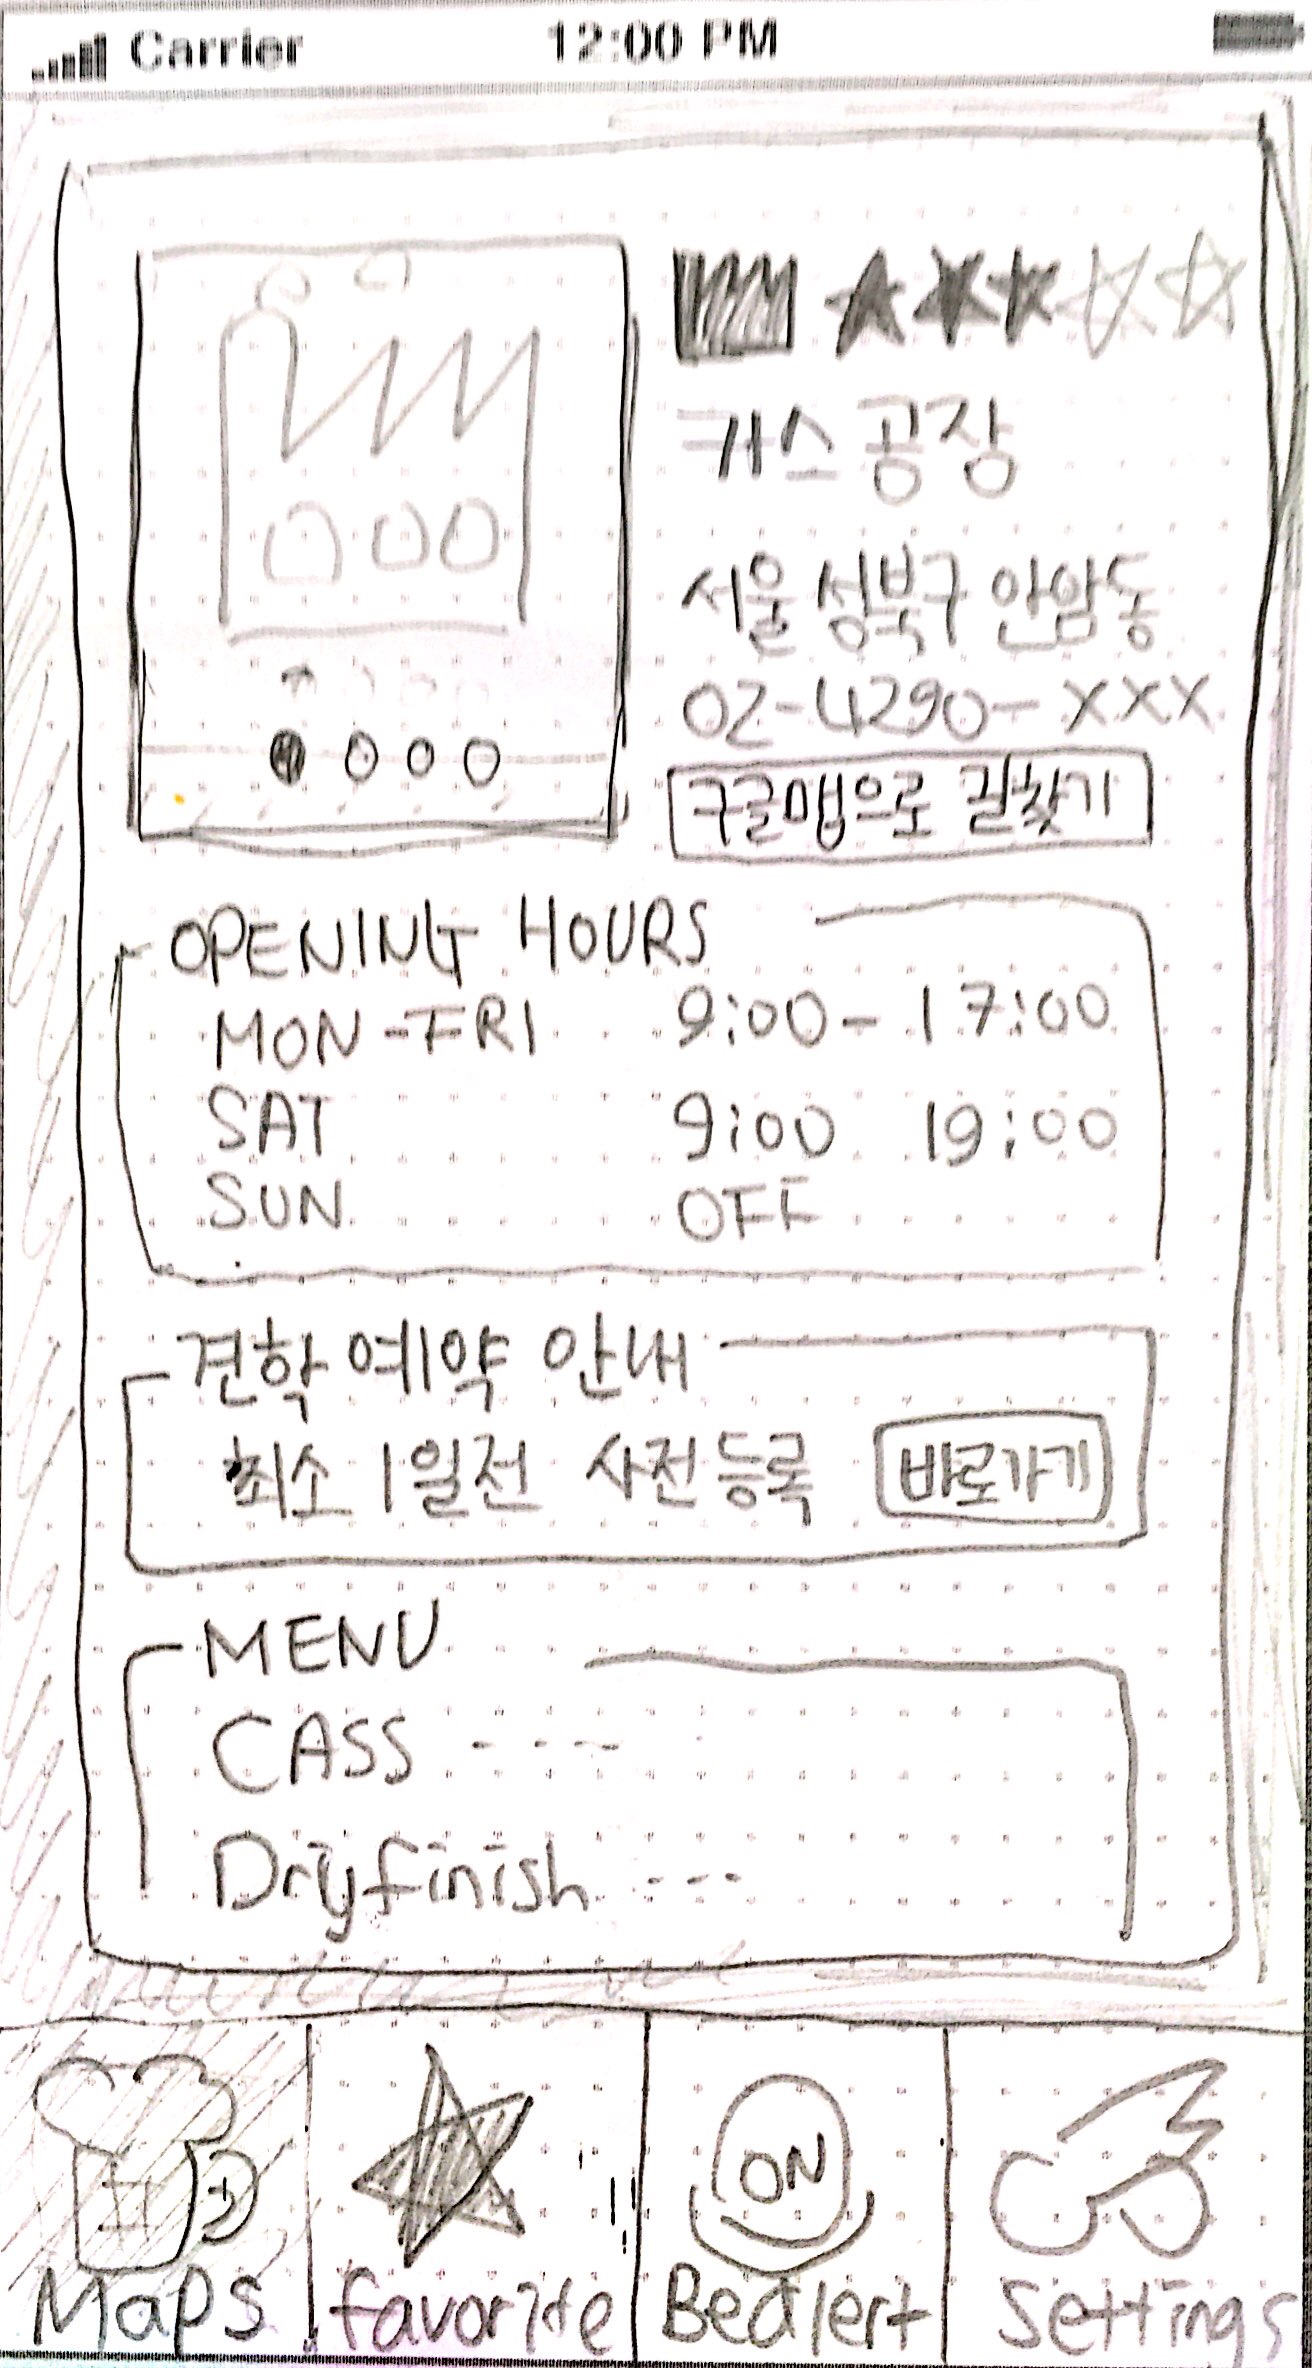 Carrier 12:00 PM
카스 공장
서울 성북구 안암동
02-4290-XXX
구글맵으로 길찾기
OPENING HOURS
MON-FRI 9:00-17:00
SAT 9:00 19:00
SUN OFF
견학 예약 안내
최소 1일전 사전등록 바로가기
MENU
CASS ----
Dryfinish ---
ON
Maps favorite Bealert Settings